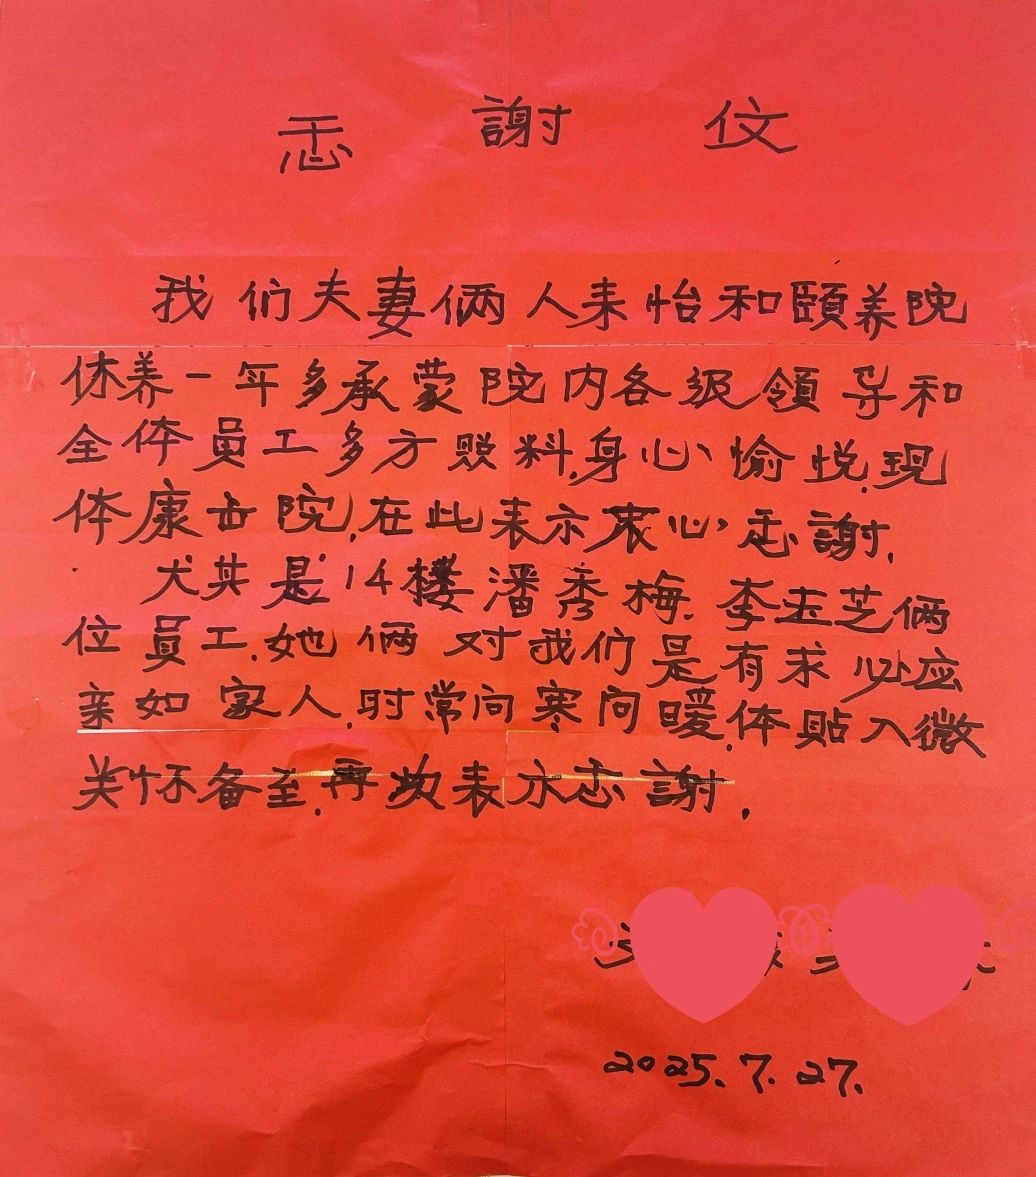 感謝伩
我们夫妻俩人来怡和頤养院
休养一年多承蒙院内各级領导和
全体員工多方照料,身心愉悦,现
体康出院,在此表示衷心感謝.
尤其是14楼潘秀梅.李玉芝俩
位員工.她俩对我们是有求必应
亲如家人,时常问寒问暖,体貼入微
关怀备至,再次表示感謝.
2025.7.27.